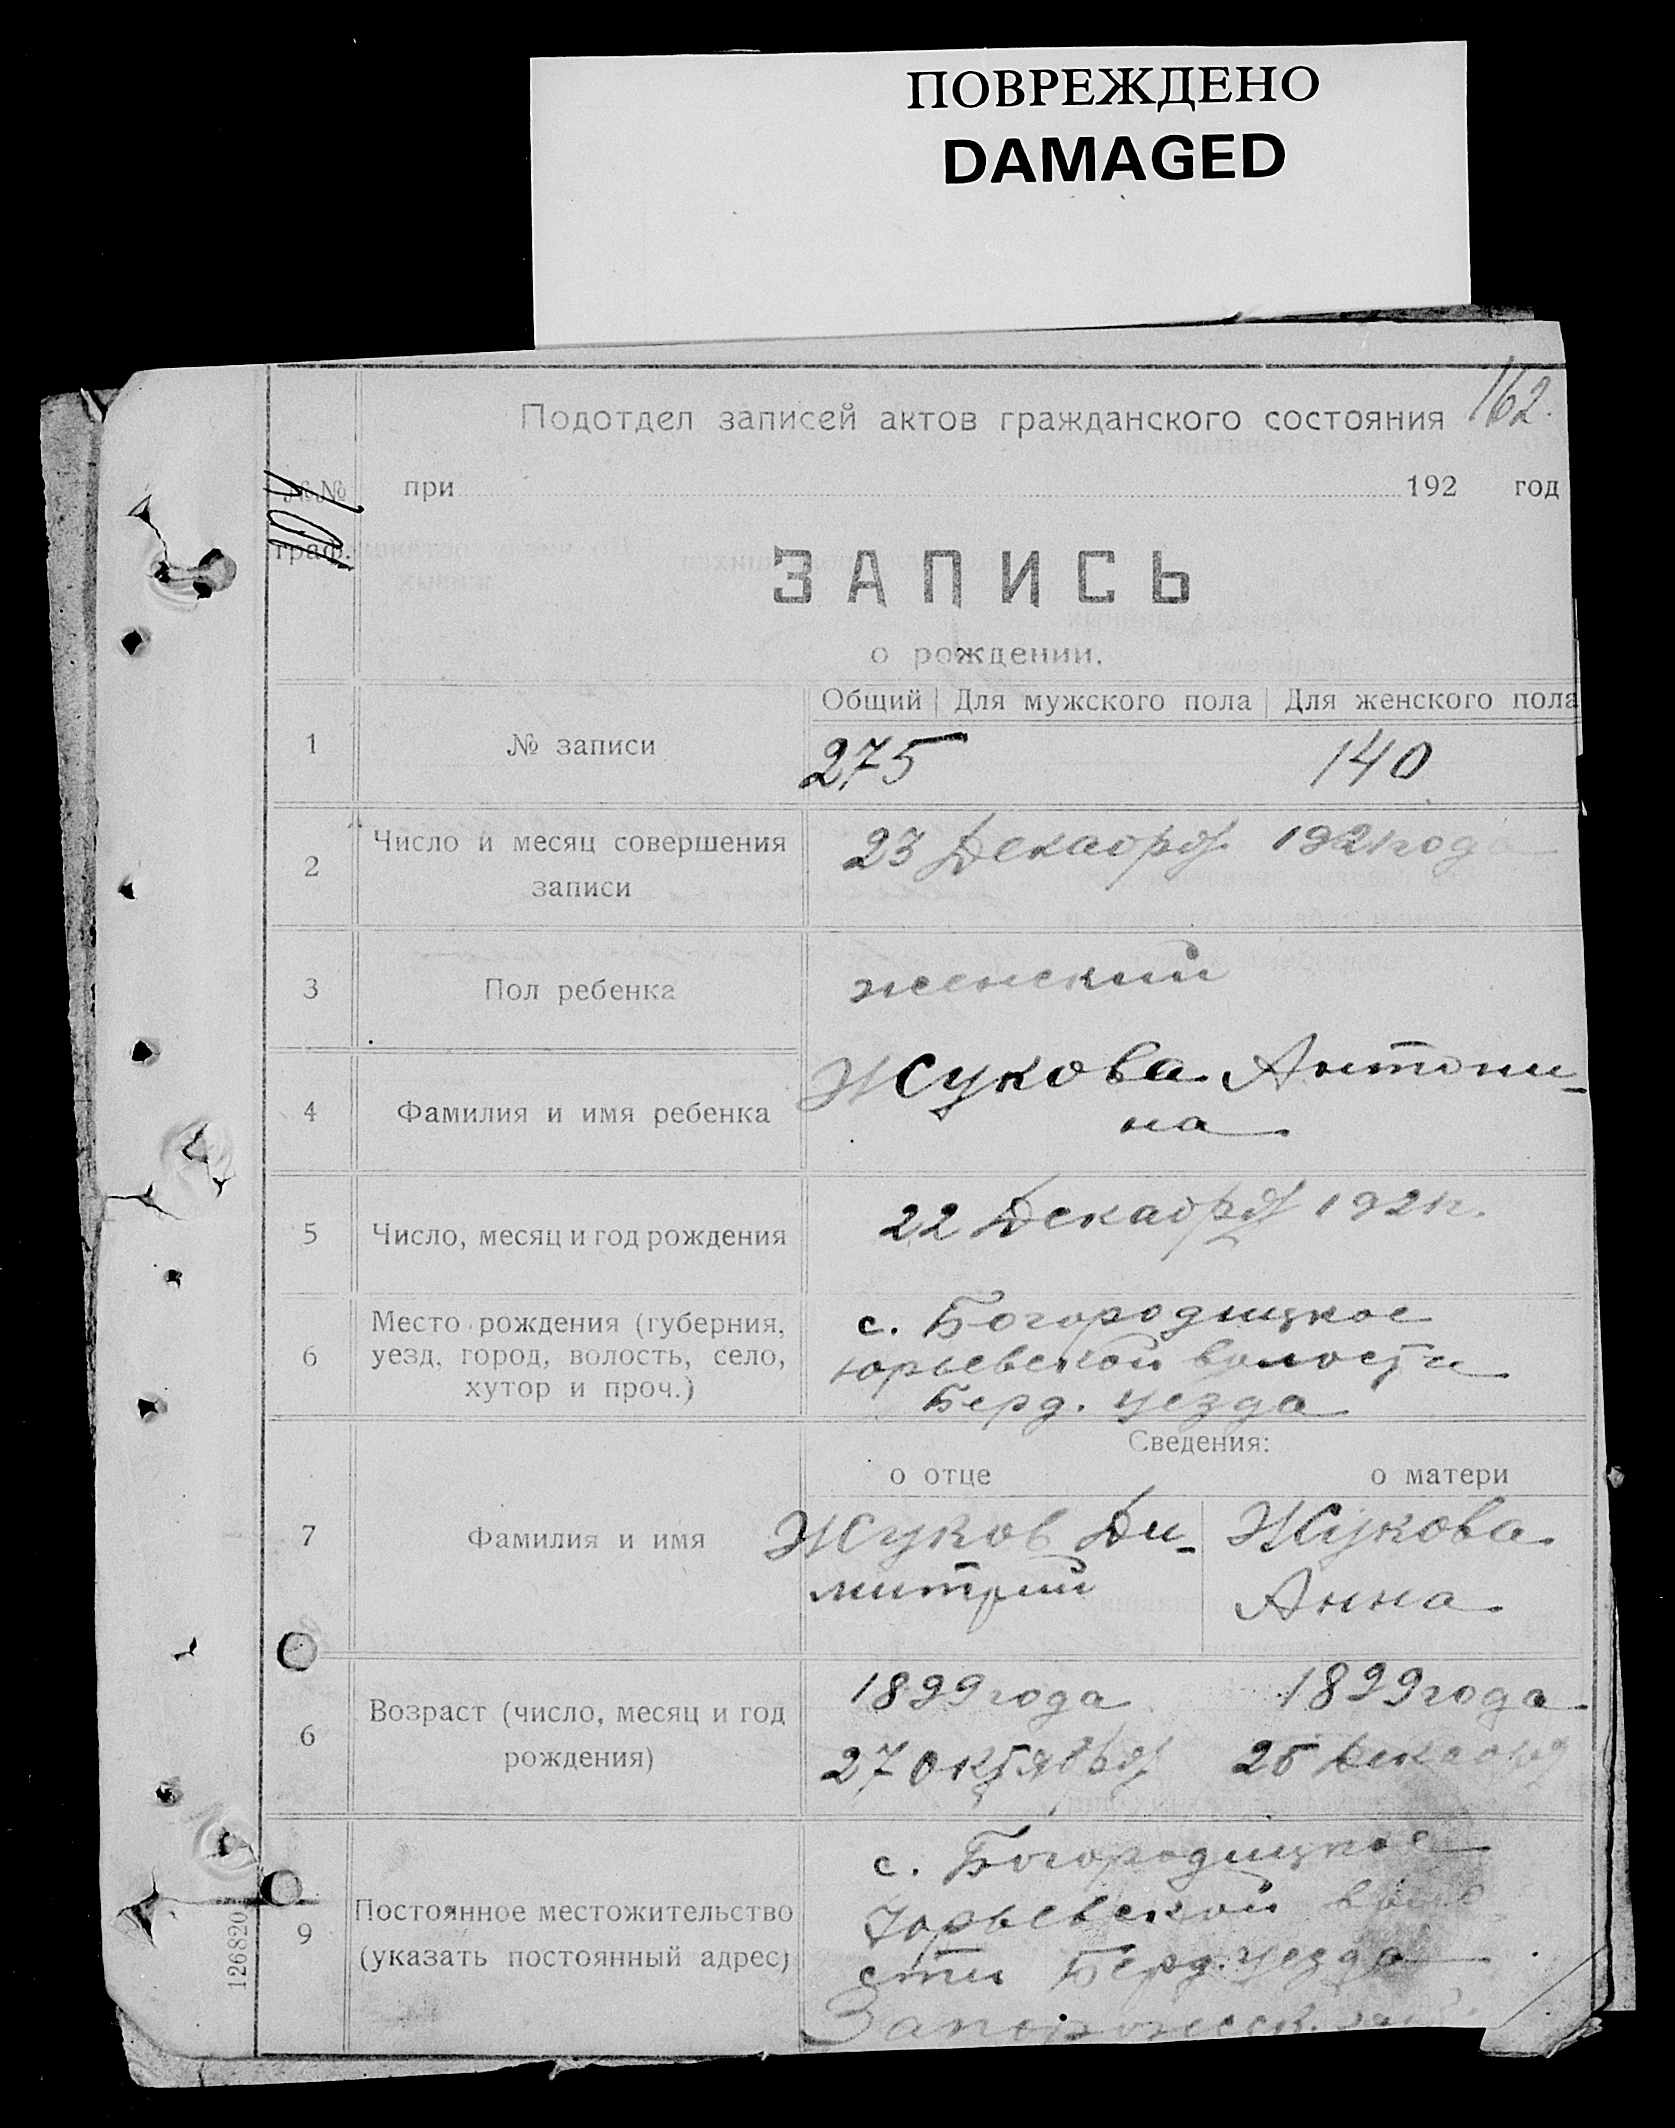 ПОВРЕЖДЕНО
DAMAGED
162.
Подотдел записей актов гражданского состояния
№№ при 192 год
граф.
ЗАПИСЬ
о рождении.
Общий Для мужского пола Для женского пола
1 № записи 275 140
2 Число и месяц совершения записи
23 Декабря 1921 года
3 Пол ребенка женский
4 Фамилия и имя ребенка
Жукова Антони-
на
5 Число, месяц и год рождения 22 Декабря 1921 г.
6 Место рождения (губерния,
уезд, город, волость, село,
хутор и проч.)
с. Богородицкое
Юрьевской волости
Берд. уезда
Сведения:
о отце о матери
7 Фамилия и имя
Жуков Ди-
митрий
Жукова
Анна
6 Возраст (число, месяц и год
рождения)
1899 года
27 октября
1899 года
25 декабря
9 Постоянное местожительство
(указать постоянный адрес)
с. Богородицкое
Юрьевской воло-
сти Берд. уезда
126820